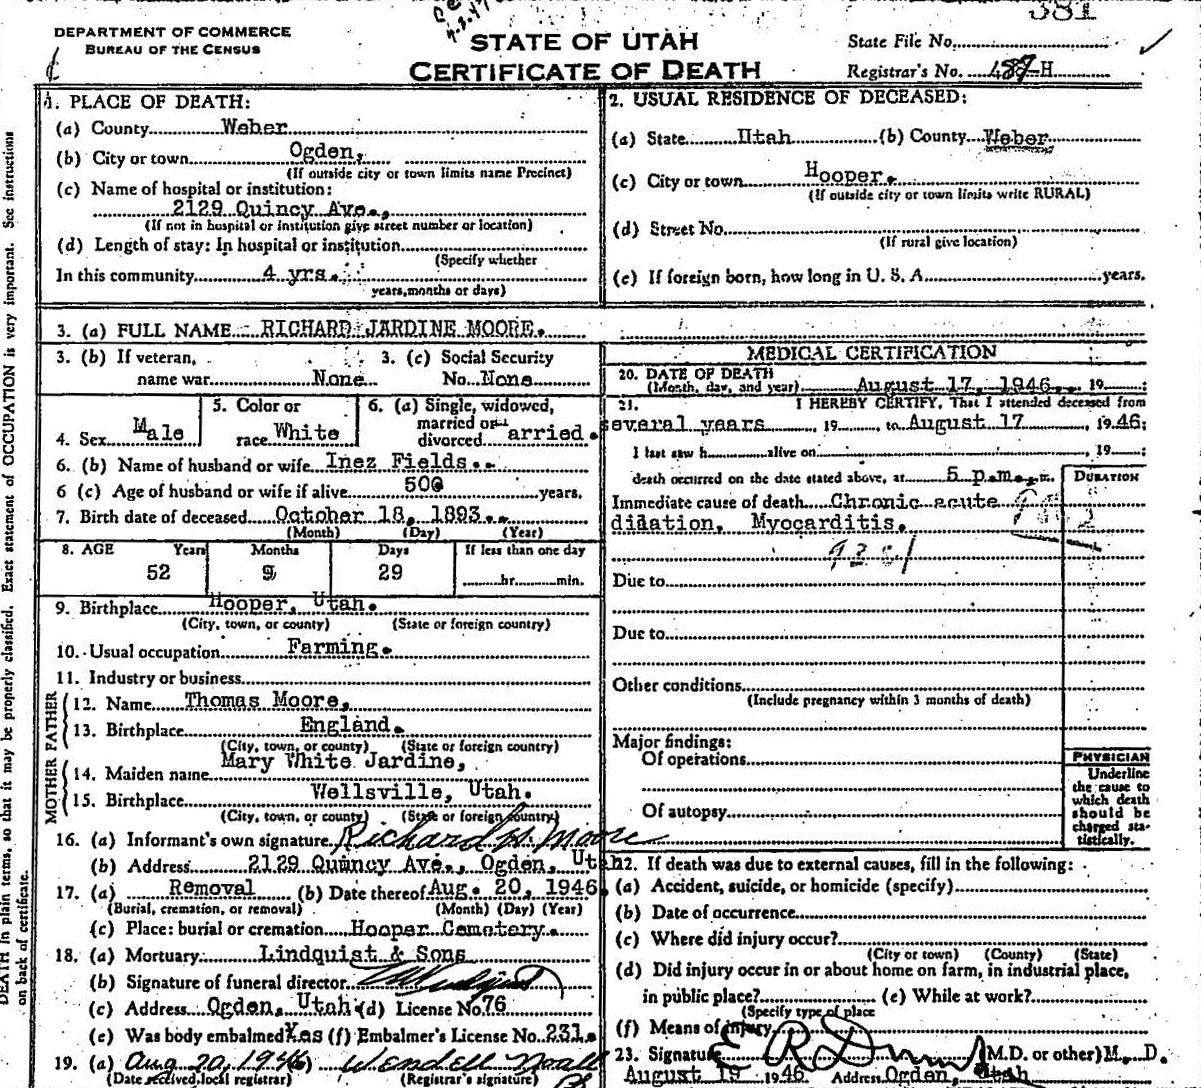 381
DEPARTMENT OF COMMERCE
BUREAU OF THE CENSUS
STATE OF UTAH
CERTIFICATE OF DEATH
State File No.
Registrar's No. 487-H
1. PLACE OF DEATH:
(a) County Weber
(b) City or town Ogden,
(If outside city or town limits name Precinct)
(c) Name of hospital or institution:
2129 Quincy Ave.,
(If not in hospital or institution give street number or location)
(d) Length of stay: In hospital or institution
(Specify whether
In this community 4 yrs.
years, months or days)
2. USUAL RESIDENCE OF DECEASED:
(a) State Utah (b) County Weber
(c) City or town Hooper.
(If outside city or town limits write RURAL)
(d) Street No.
(If rural give location)
(e) If foreign born, how long in U. S. A. years.
3. (a) FULL NAME RICHARD JARDINE MOORE.
3. (b) If veteran, name war None
3. (c) Social Security No. None
4. Sex Male
5. Color or race White
6. (a) Single, widowed, married or divorced arried.
6. (b) Name of husband or wife Inez Fields..
6 (c) Age of husband or wife if alive 50 years.
7. Birth date of deceased October 18, 1893..
(Month) (Day) (Year)
8. AGE Years Months Days If less than one day
52 9 29 hr. min.
9. Birthplace Hooper, Utah.
(City, town, or county) (State or foreign country)
10. Usual occupation Farming.
11. Industry or business
FATHER
12. Name Thomas Moore,
13. Birthplace England.
(City, town, or county) (State or foreign country)
MOTHER
14. Maiden name Mary White Jardine,
15. Birthplace Wellsville, Utah.
(City, town, or county) (State or foreign country)
16. (a) Informant's own signature Richard Moore
(b) Address 2129 Quincy Ave., Ogden, Utah
17. (a) Removal (b) Date thereof Aug. 20, 1946.
(Burial, cremation, or removal) (Month) (Day) (Year)
(c) Place: burial or cremation Hooper Cemetery.
18. (a) Mortuary Lindquist & Sons
(b) Signature of funeral director
(c) Address Ogden, Utah (d) License No. 76
(e) Was body embalmed Yes (f) Embalmer's License No. 231.
19. (a) Aug 20, 1946 Wendell Noall
(Date received local registrar) (Registrar's signature)
MEDICAL CERTIFICATION
20. DATE OF DEATH
(Month, day, and year) August 17, 1946. 19 ;
21. I HEREBY CERTIFY, That I attended deceased from
several years , 19 , to August 17 , 1946;
I last saw h alive on , 19 ;
death occurred on the date stated above, at 5 p.m. m.
DURATION
Immediate cause of death Chronic acute
dilation, Myocarditis.
Due to
Due to
Other conditions
(Include pregnancy within 3 months of death)
Major findings:
Of operations
Of autopsy
PHYSICIAN
Underline
the cause to
which death
should be
charged sta-
tistically.
22. If death was due to external causes, fill in the following:
(a) Accident, suicide, or homicide (specify)
(b) Date of occurrence
(c) Where did injury occur?
(City or town) (County) (State)
(d) Did injury occur in or about home on farm, in industrial place,
in public place? (e) While at work?
(Specify type of place
(f) Means of injury
23. Signature E R (M.D. or other) M. D.
August 19 1946 Address Ogden, Utah
DEATH in plain terms, so that it may be properly classified. Exact statement of OCCUPATION is very important. See instructions
on back of certificate.